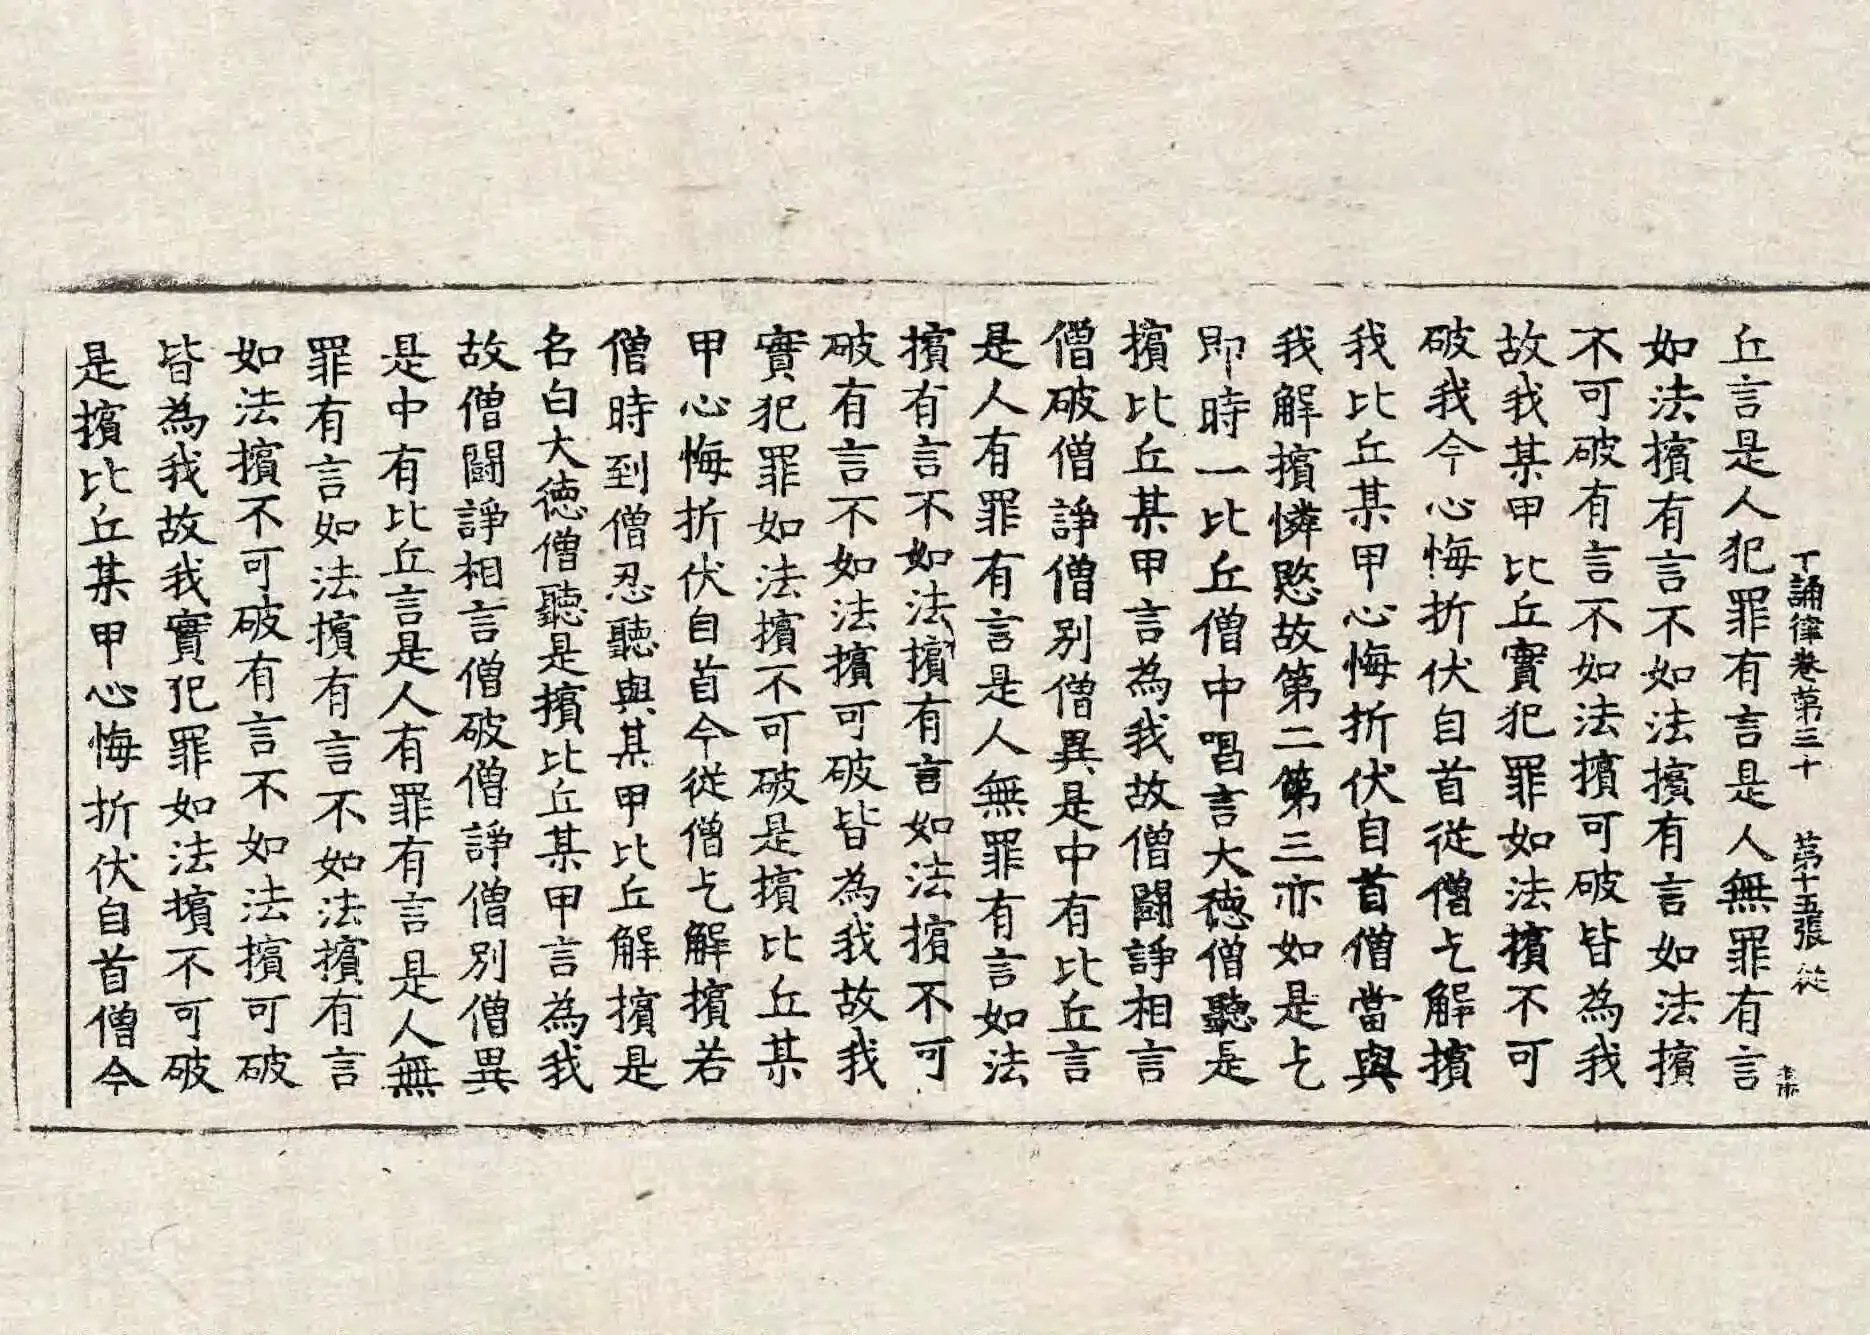 丁誦律卷第三十　第十五張　從
丘言是人犯罪有言是人無罪有言
如法擯有言不如法擯有言如法擯
不可破有言不如法擯可破皆為我
故我某甲比丘實犯罪如法擯不可
破我今心悔折伏自首從僧乞解擯
我比丘某甲心悔折伏自首僧當與
我解擯憐愍故第二第三亦如是乞
即時一比丘僧中唱言大德僧聽是
擯比丘某甲言為我故僧鬪諍相言
僧破僧諍僧別僧異是中有比丘言
是人有罪有言是人無罪有言如法
擯有言不如法擯有言如法擯不可
破有言不如法擯可破皆為我故我
實犯罪如法擯不可破是擯比丘某
甲心悔折伏自首今從僧乞解擯若
僧時到僧忍聽與某甲比丘解擯是
名白大德僧聽是擯比丘某甲言為我
故僧鬪諍相言僧破僧諍僧別僧異
是中有比丘言是人有罪有言是人無
罪有言如法擯有言不如法擯有言
如法擯不可破有言不如法擯可破
皆為我故我實犯罪如法擯不可破
是擯比丘某甲心悔折伏自首僧今